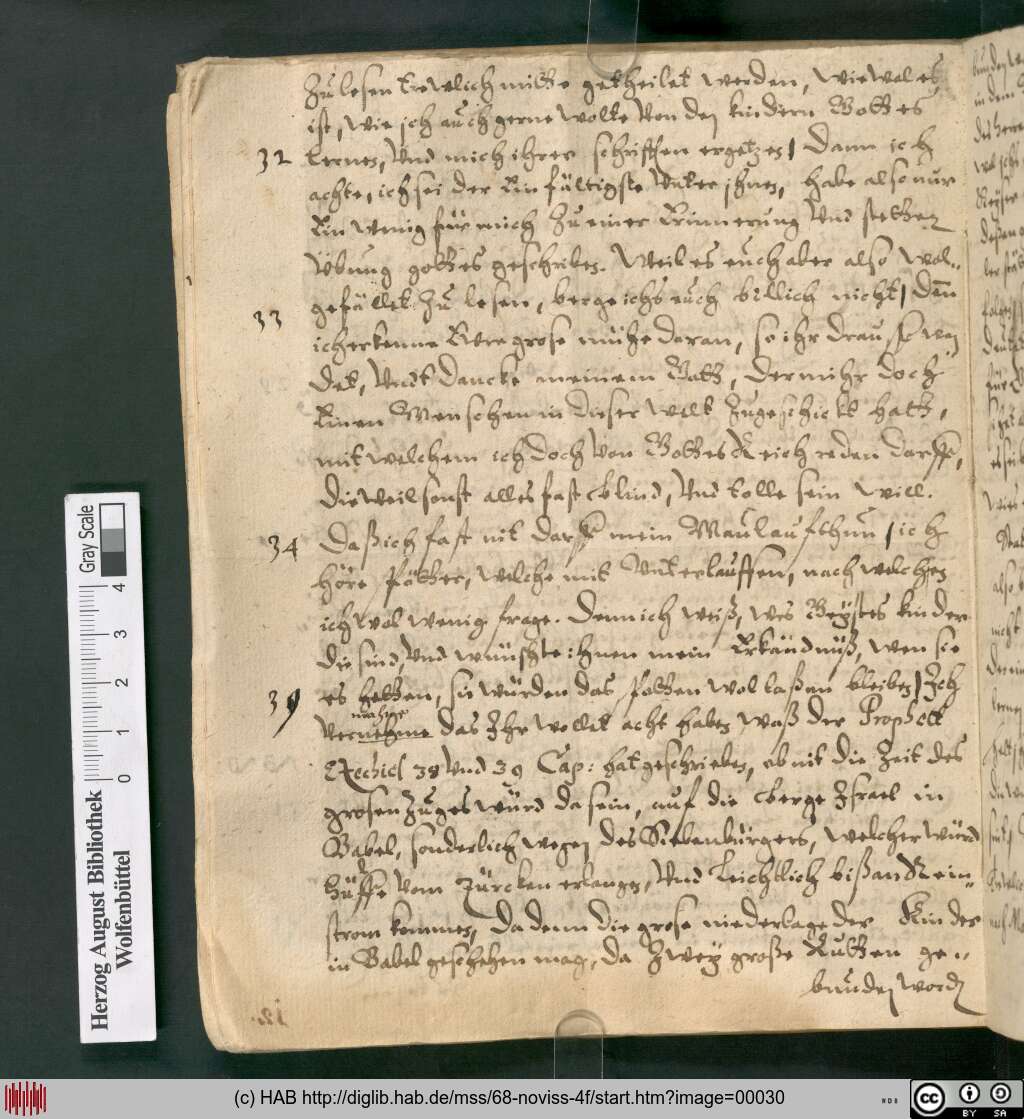 Zu lesen treulich mitte getheilet werden, wie wol es
ist, wie jch auch gerne wolte von den kindern Gottes
32 lernen, und mich ihrer schrifften ergetzen / Dann ich
achte, ich sei der Einfältigste unter jhnen, habe also nur
Ein wenig für mich zu einer Erinnerung und stetten
Übung gottes geschriben. Weil es euch aber also wol„
gefällett zu lesen, berge ichs euch billich nicht / Denn
33 ich erkenne Eure grose mühe daran, so ihr drauff wen
det, undt dancke meinem Gott, der mihr doch
Einen Menschen in dieser welt zugeschickt hatt,
mit welchem ich doch von Gottes Reich reden darff,
Dieweil sonst alles fast blind, und tolle sein will.
34 Daß ich fast nit darff mein Maul aufthun / ich
höre Spötter, welche mit unterlauffen, nach welchen
ich wol wenig frage. Denn ich weiß, wes Geistes kinder
die sind, und wünschte ihnen mein Erkändnüß, wen sie
es hetten, sie würden das spotten wol laßen bleiben / Jch
35 vermahne das Ihr wollet acht haben waß der Prophett
Ezechiel 38 und 39 Cap: hat geschrieben, ob nit die Zeit des
grosen Zuges würd da sein, auf die berge Israel in
Babel, sonderlich wegen des Siebenbürgers, welcher würd
hülffe vom Türcken erlangen, und leichtlich biß an Rein„
strom kommen, Da denn die grose niederlage der Kinder
in Babel geschehen mag, da Zwey große Rutten ge„
bunden word
Herzog August Bibliothek
Wolfenbüttel
Gray Scale
0 1 2 3 4
(c) HAB http://diglib.hab.de/mss/68-noviss-4f/start.htm?image=00030
WDB
cc BY SA